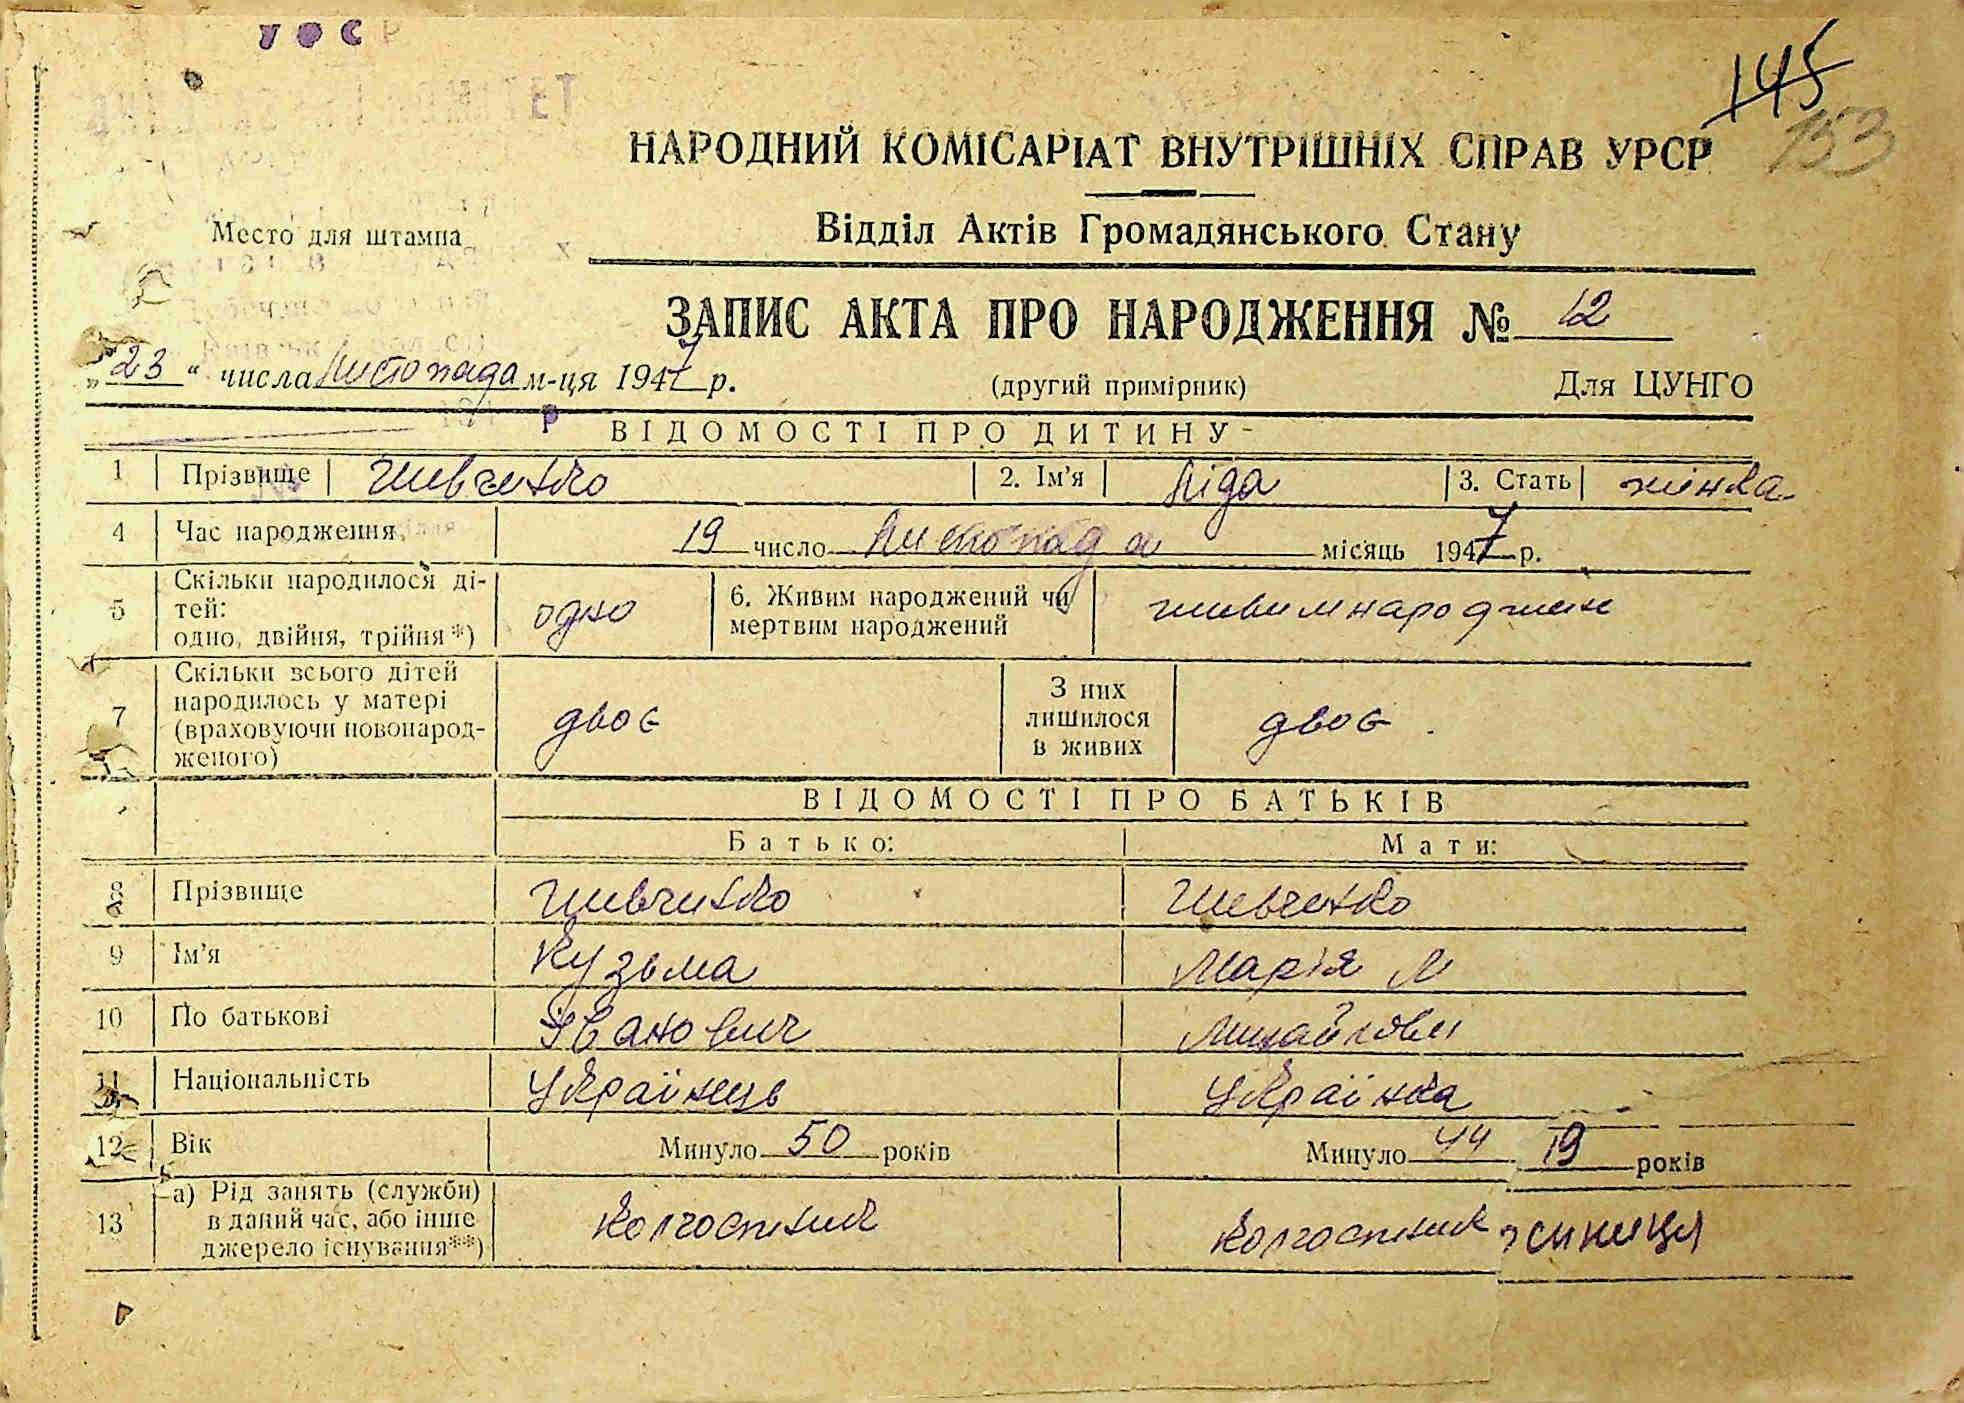 УРСР
145
153
НАРОДНИЙ КОМІСАРІАТ ВНУТРІШНІХ СПРАВ УРСР
Место для штампа
Відділ Актів Громадянського Стану
ЗАПИС АКТА ПРО НАРОДЖЕННЯ № 12
„23“ числа Листопада м-ця 1947 р. (другий примірник) Для ЦУНГО
ВІДОМОСТІ ПРО ДИТИНУ
1 Прізвище Шевченко 2. Ім'я Ліда 3. Стать жінка
4 Час народження 19 число Листопада місяць 1947 р.
5 Скільки народилося ді-
тей:
одно, двійня, трійня*) одно 6. Живим народжений чи
мертвим народжений живимнароджен
7 Скільки всього дітей
народилось у матері
(враховуючи новонарод-
женого) двоє З них
лишилося
в живих двоє.
ВІДОМОСТІ ПРО БАТЬКІВ
Батько: Мати:
8 Прізвище Шевченко Шевченко
9 Ім'я Кузьма Марія М
10 По батькові Іванович
11 Національність Українець Українка
12 Вік Минуло 50 років Минуло 44 19 років
13 а) Рід занять (служби)
в даний час, або інше
джерело існування**) Колгоспник Колгоспник